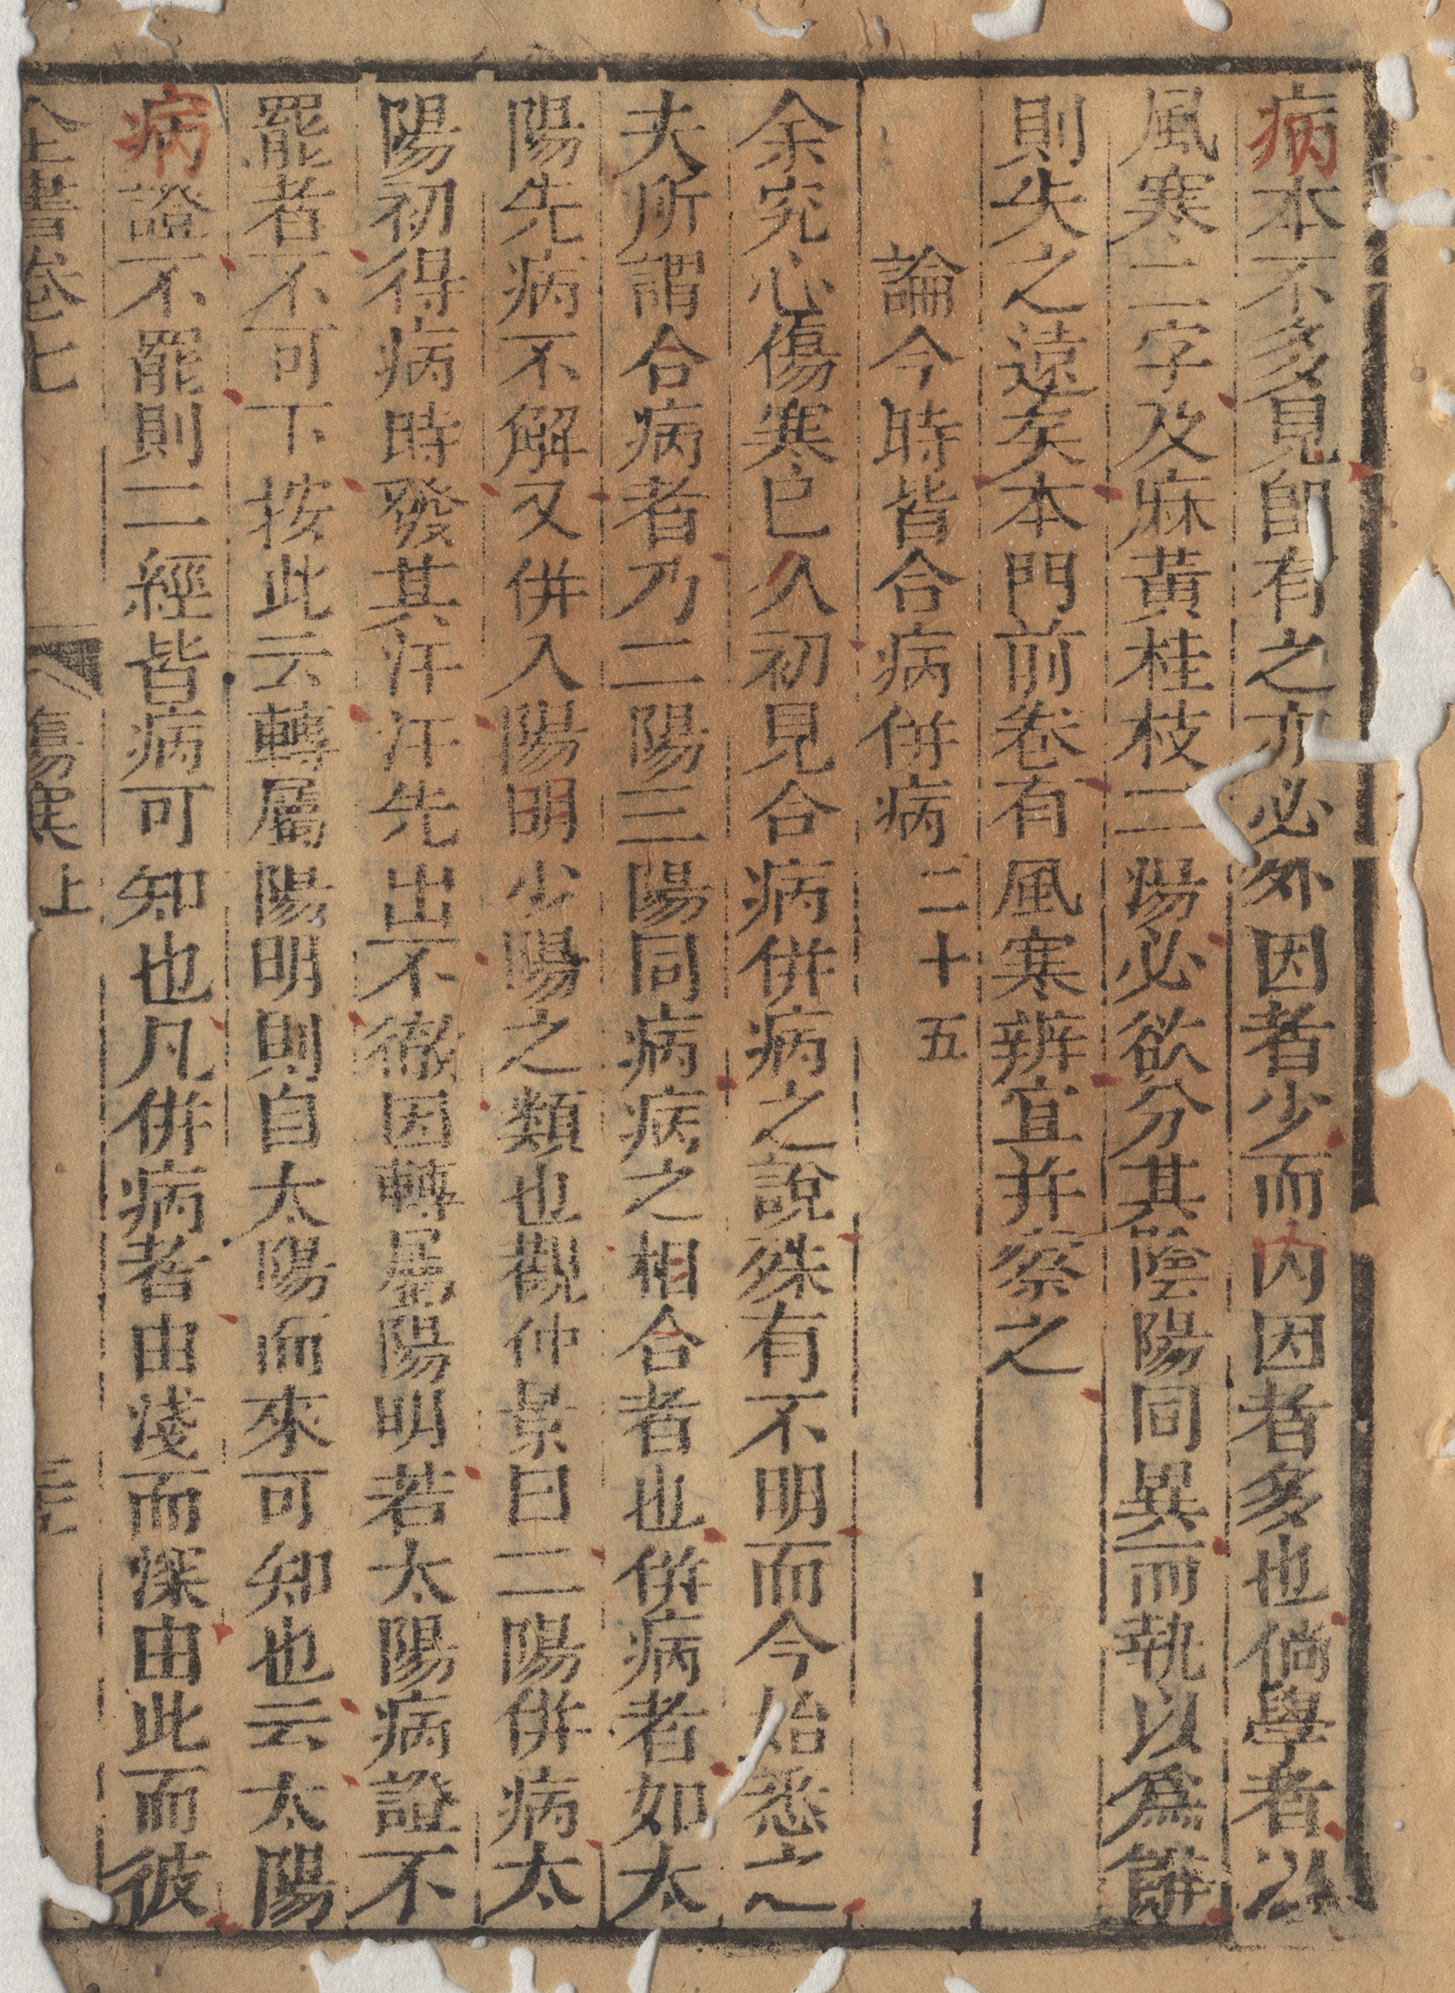 病本不多見即有之亦必外因者少而内因者多也倘學者以
風寒二字及麻黃桂枝二湯必欲分其陰陽同異而執以為辭
則失之遠矣本門前卷有風寒辨宜并察之
論今時皆合病併病二十五
余究心傷寒已久初見合病併病之說殊有不明而今始悉之
夫所謂合病者乃二陽三陽同病病之相合者也併病者如太
陽先病不解又併入陽明少陽之類也觀仲景曰二陽併病太
陽初得病時發其汗汗先出不徹因轉屬陽明若太陽病證不
罷者不可下按此云轉屬陽明則自太陽而來可知也云太陽
病證不罷則二經皆病可知也凡併病者由淺而深由此而彼
全書卷七 傷寒上